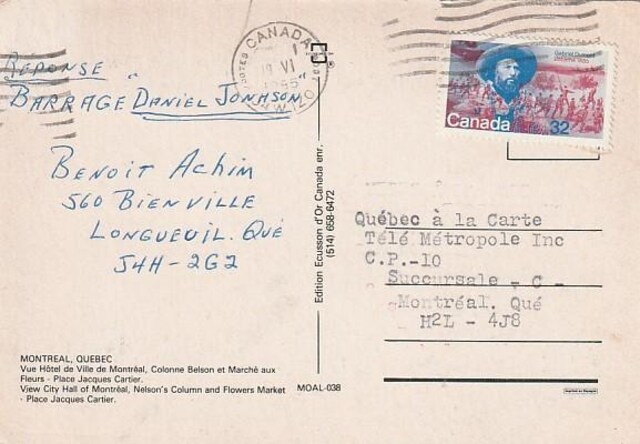 RÉPONSE
"BARRAGE DANIEL JONASON"
BENOIT ACHIM
560 BIENVILLE
LONGUEUIL. QUÉ
J4H-2G2
MONTREAL, QUEBEC
Vue Hôtel de Ville de Montréal, Colonne Belson et Marché aux
Fleurs - Place Jacques Cartier.
View City Hall of Montréal, Nelson's Column and Flowers Market
- Place Jacques Cartier.
Edition Ecusson d'Or Canada enr.
(514) 658-6472
MOAL-038
CANADA
VI
Gabriel Dumont
Canada 32
Québec à la Carte
Télé Métropole Inc
C.P.-10
Succursale - C -
Montréal. Qué
H2L - 4J8